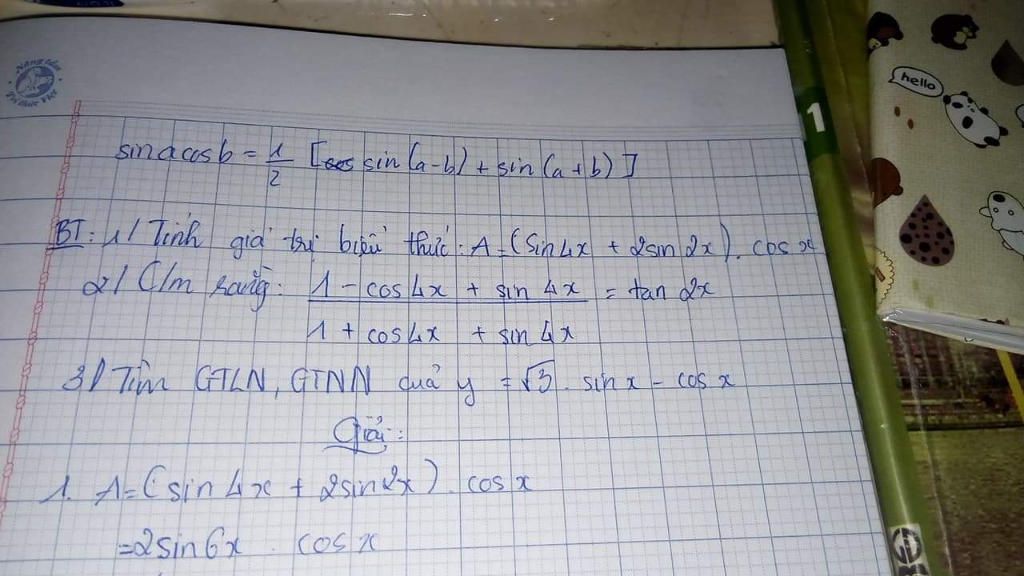 Nâng tầm
Tri thức Việt
hello
1
sin a cos b = 1/2 [sin(a-b) + sin(a+b)]
BT: 1/ Tính giá trị biểu thức: A = (sin4x + 2sin2x). cos x
2/ C/m rằng: 1 - cos4x + sin4x / 1 + cos4x + sin4x = tan 2x
3/ Tìm GTLN, GTNN quả y = √3. sin x - cos x
Giải:
1. A = (sin4x + 2sin2x). cos x
= 2sin6x . cos x